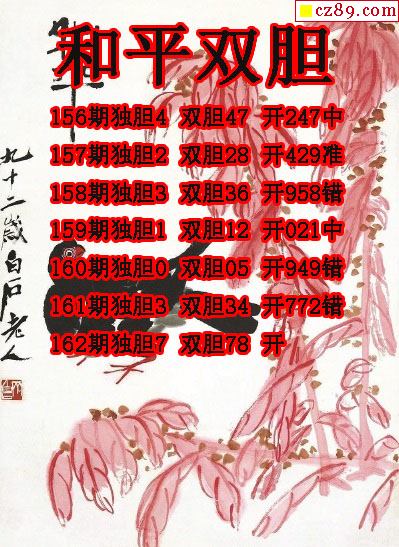 cz89.com
和平
和平双胆
156期独胆4 双胆47 开247中
157期独胆2 双胆28 开429准
158期独胆3 双胆36 开958错
159期独胆1 双胆12 开021中
160期独胆0 双胆05 开949错
161期独胆3 双胆34 开772错
162期独胆7 双胆78 开
九十二岁白石老人